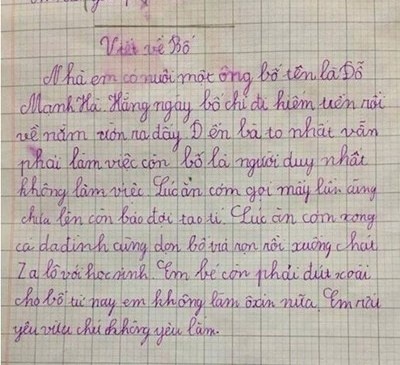 Viết về Bố
Nhà em có nuôi một ông bố tên là Đỗ
Mạnh Hà. Hằng ngày bố chỉ đi kiêm tiền rồi
về nằm ườn ra đấy. Đến bà to nhất vẫn
phải làm việc còn bố là người duy nhất
không làm việc. Lúc ăn cơm gọi mấy lần cũng
chưa lên còn bảo đợi tao tí. Lúc ăn cơm xong
cả da đình cùng dọn bố và rọn rồi xuống chat
Za lô với học sinh. Em bé còn phải đút xoài
cho bố từ nay em không làm ôxin nữa. Em
yêu vừa chứ không yêu lắm.